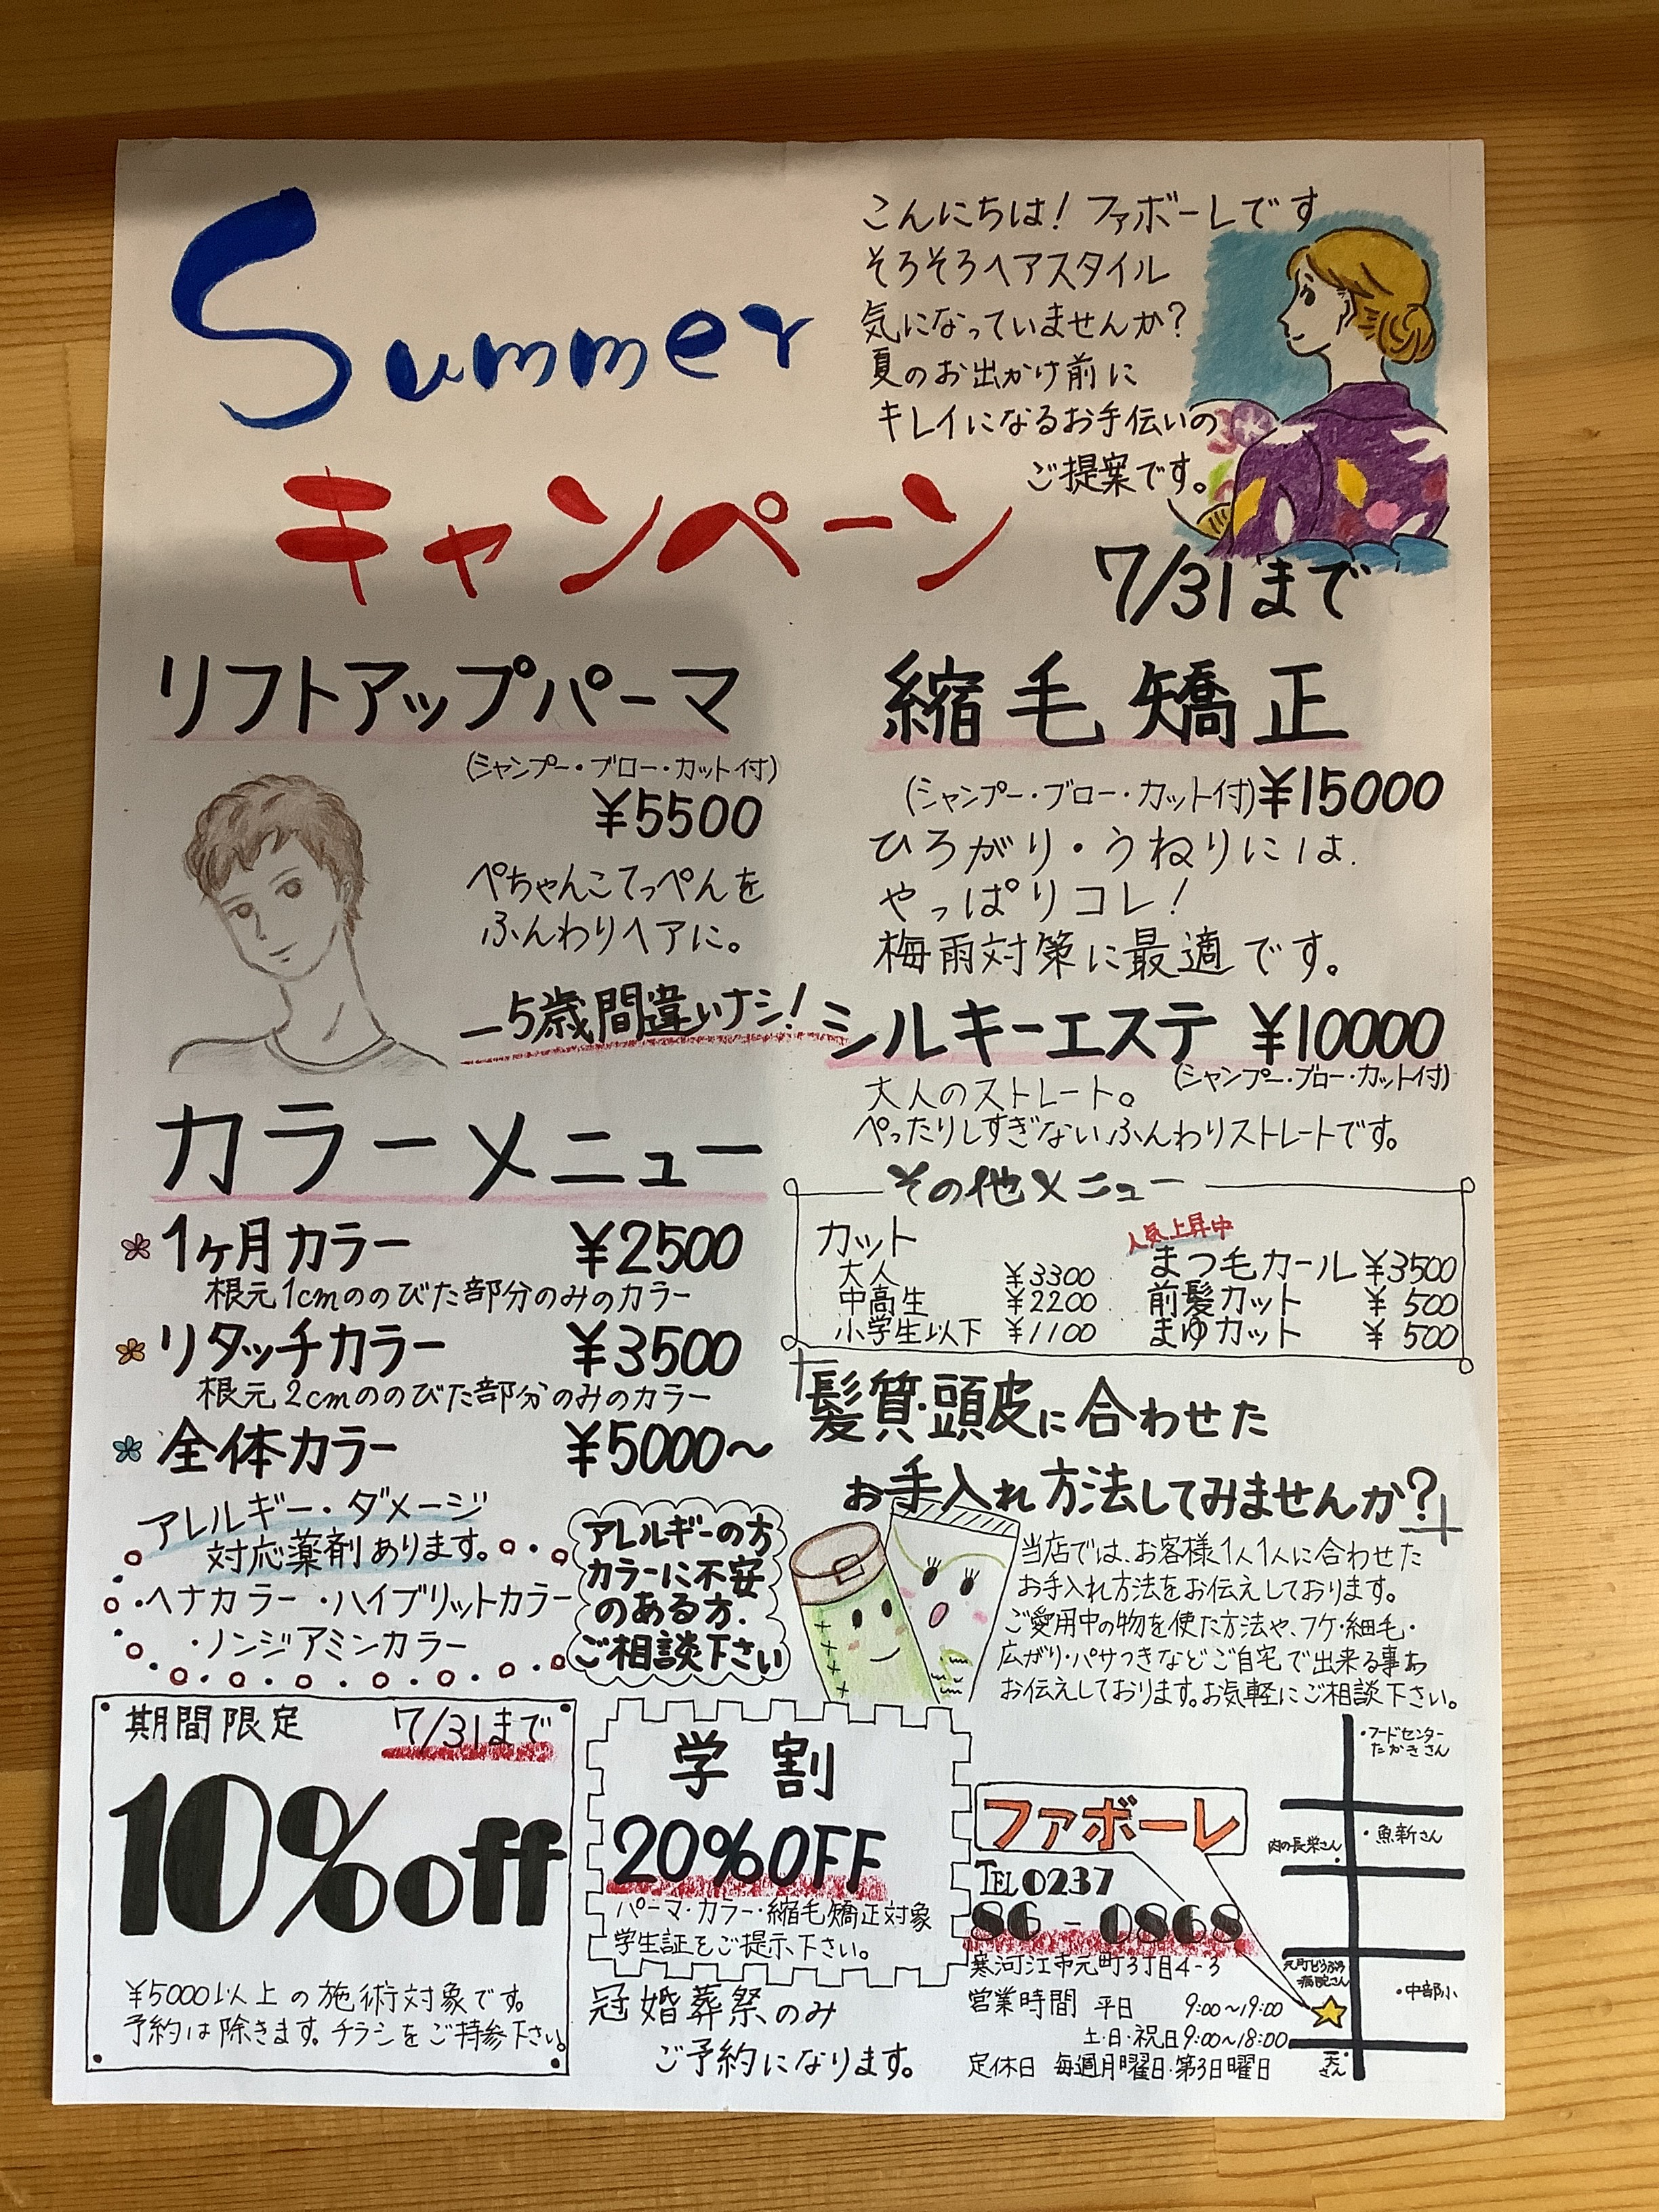 Summer
キャンペーン
こんにちは! ファボーレです
そろそろヘアスタイル
気になっていませんか?
夏のお出かけ前に
キレイになるお手伝いの
ご提案です。
7/31まで
リフトアップパーマ
(シャンプー・ブロー・カット付)
¥5500
ぺちゃんこてっぺんを
ふんわりヘアに。
−5歳間違いナシ!
縮毛矯正
(シャンプー・ブロー・カット付)¥15000
ひろがり・うねりには、
やっぱりコレ!
梅雨対策に最適です。
シルキーエステ ¥10000
(シャンプー・ブロー・カット付)
大人のストレート。
ぺったりしすぎないふんわりストレートです。
カラーメニュー
1ヶ月カラー ¥2500
根元1cmののびた部分のみのカラー
リタッチカラー ¥3500
根元2cmののびた部分のみのカラー
全体カラー ¥5000〜
アレルギー・ダメージ
対応薬剤あります。
・ヘナカラー ・ハイブリットカラー
・ノンジアミンカラー
アレルギーの方
カラーに不安
のある方、
ご相談下さい
その他メニュー
カット
大人 ¥3300
中高生 ¥2200
小学生以下 ¥1100
人気上昇中
まつ毛カール ¥3500
前髪カット ¥500
まゆカット ¥500
「髪質・頭皮に合わせた
お手入れ方法してみませんか?」
当店では、お客様1人1人に合わせた
お手入れ方法をお伝えしております。
ご愛用中の物を使た方法や、フケ・細毛・
広がり・パサつきなどご自宅で出来る事も
お伝えしております。お気軽にご相談下さい。
期間限定 7/31まで
10%off
¥5000以上の施術対象です。
予約は除きます。チラシをご持参下さい。
学割
20%OFF
パーマ・カラー・縮毛矯正対象
学生証をご提示下さい。
冠婚葬祭のみ
ご予約になります。
ファボーレ
TEL 0237
86-0868
寒河江市元町3丁目4-3
営業時間 平日 9:00〜19:00
土・日・祝日9:00〜18:00
定休日 毎週月曜日・第3日曜日
・フードセンター
たかきさん
肉の長栄さん
・魚新さん
元町どうぶつ
病院さん
・中部小